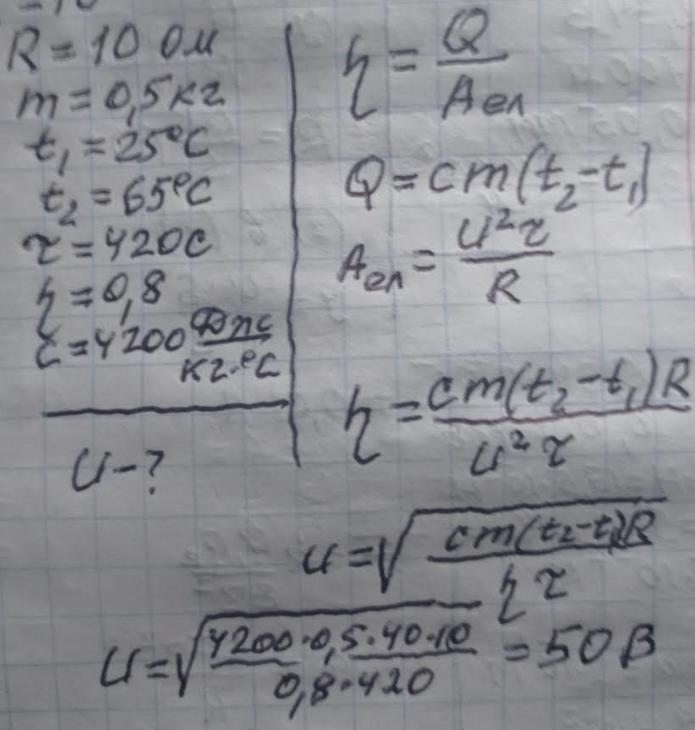 R = 10 Ом
m = 0,5 кг
t₁ = 25°C
t₂ = 65°C
τ = 420 c
η = 0,8
c = 4200 Дж/кг·°C
U - ?
η = Q/Aел
Q = cm(t₂ - t₁)
Aел = U²τ/R
η = cm(t₂ - t₁)R/U²τ
U = √(cm(t₂ - t₁)R/ητ)
U = √(4200·0,5·40·10/0,8·420) = 50 В